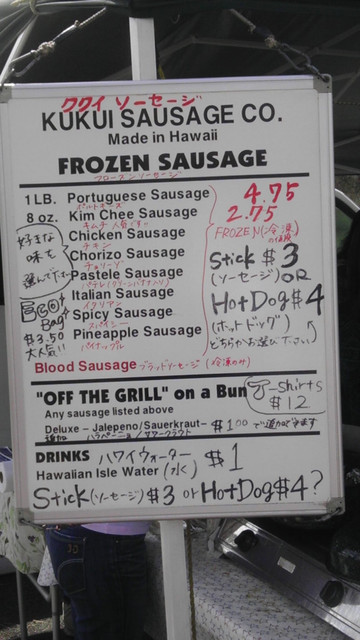 ククイ ソーセージ
KUKUI SAUSAGE CO.
Made in Hawaii
FROZEN SAUSAGE
フローズンソーセージ
1 LB. Portuguese Sausage 4.75
ポルトギース
8 oz. Kim Chee Sausage 2.75
キムチ
Chicken Sausage
チキン
Chorizo Sausage
チョリーソ
Pastele Sausage
Italian Sausage
イタリアン
Spicy Sausage
スパイシー
Pineapple Sausage
パイナップル
Blood Sausage ブラッドソーセージ (冷凍のみ)
好きな
味を
選んで下さい
Eco
Bag
$3.50
大人気!!
FROZEN (冷凍
の値段)
Stick $3
(ソーセージ) OR
HotDog $4
(ホットドッグ)
どちらかお選び下さい)
"OFF THE GRILL" on a Bun
Any sausage listed above
Deluxe – Jalepeno/Sauerkraut– $1.00で追加できます
追加 ハラペーニョ/サワークラウト
T-shirts
$12
DRINKS ハワイウォーター
Hawaiian Isle Water (水) $1
Stick (ソーセージ) $3 or HotDog $4?